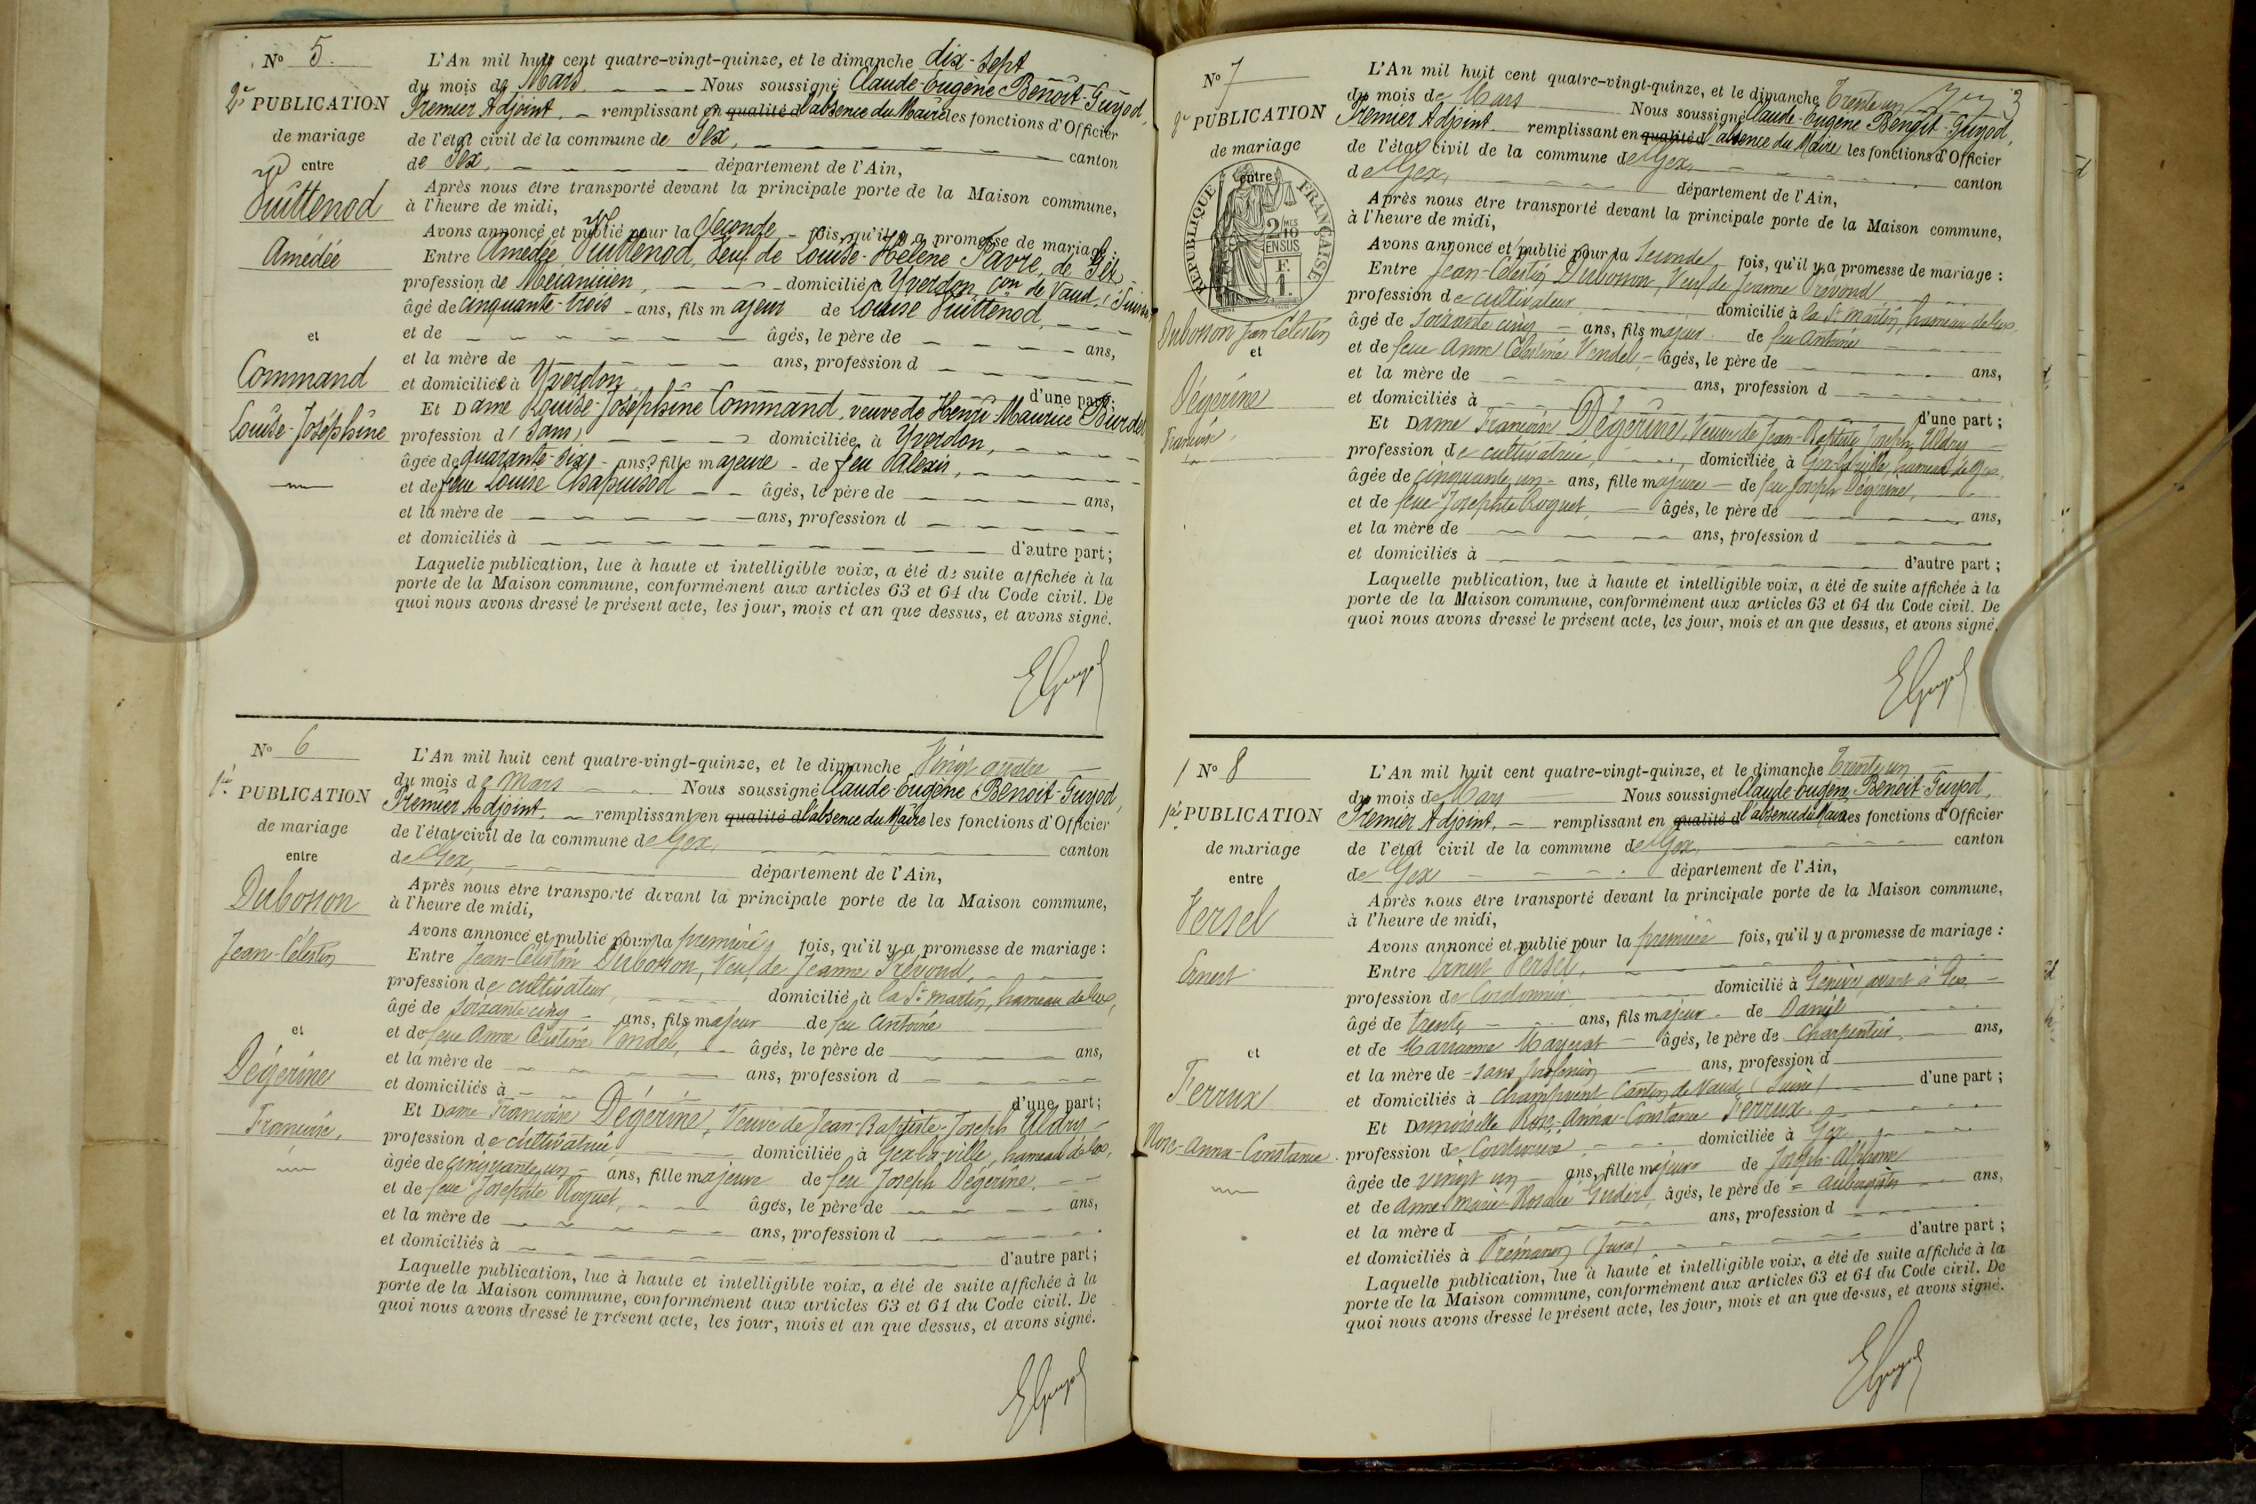 N° 5.
2e PUBLICATION
de mariage
entre
Vuittenod
Amédée
et
Command
Louise-Joséphine
L'An mil huit cent quatre-vingt-quinze, et le dimanche dix-sept
du mois de Mars Nous soussigné Claude-Eugène Benoit-Guyod,
Premier Adjoint, remplissant en qualité d l'absence du Maire les fonctions d'Officier
de l'état civil de la commune de Gex, canton
de Gex, département de l'Ain,
Après nous être transporté devant la principale porte de la Maison commune,
à l'heure de midi,
Avons annoncé et publié pour la Seconde fois, qu'il y a promesse de mariage :
Entre Amédée Vuittenod, veuf de Louise-Hélène Favre, de Gex
profession de Mécanicien, domicilié à Yverdon, con de Vaud, (Suisse)
âgé de cinquante-trois ans, fils majeur de Louise Vuittenod,
et de âgés, le père de ans,
et la mère de ans, profession d
et domiciliée à Yverdon d'une part;
Et Dame Louise-Joséphine Command, veuve de Henri-Maurice Burdet
profession d (sans) domiciliée à Yverdon,
âgée de quarante-six ans, fille majeure de feu Alexis,
et de feue Louise Chapuisod âgés, le père de ans,
et la mère de ans, profession d
et domiciliés à d'autre part;
Laquelle publication, lue à haute et intelligible voix, a été de suite affichée à la
porte de la Maison commune, conformément aux articles 63 et 64 du Code civil. De
quoi nous avons dressé le présent acte, les jour, mois et an que dessus, et avons signé.
EGuyod
N° 6
1re PUBLICATION
de mariage
entre
Dubosson
Jean-Célestin
et
Dégerine
Françoise,
L'An mil huit cent quatre-vingt-quinze, et le dimanche Vingt quatre
du mois de Mars Nous soussigné Claude-Eugène Benoit-Guyod,
Premier Adjoint, remplissant en qualité d l'absence du Maire les fonctions d'Officier
de l'état civil de la commune de Gex, canton
de Gex, département de l'Ain,
Après nous être transporté devant la principale porte de la Maison commune,
à l'heure de midi,
Avons annoncé et publié pour la première fois, qu'il y a promesse de mariage :
Entre Jean-Célestin Dubosson, Veuf de Jeanne Prévond,
profession de cultivateur, domicilié à la St martin, hameau de Gex,
âgé de soixante cinq ans, fils majeur de feu Antoine
et de feue Anne Célestine Vendel, âgés, le père de ans,
et la mère de ans, profession d
et domiciliés à d'une part;
Et Dame Françoise Dégerine, Veuve de Jean-Baptiste-Joseph Uldry
profession de cultivatrice domiciliée à Gex-la-ville, hameau de Gex,
âgée de cinquante un ans, fille majeure de feu Joseph Dégerine,
et de feue Josephte Roquet, âgés, le père de ans,
et la mère de ans, profession d
et domiciliés à d'autre part;
Laquelle publication, lue à haute et intelligible voix, a été de suite affichée à la
porte de la Maison commune, conformément aux articles 63 et 64 du Code civil. De
quoi nous avons dressé le présent acte, les jour, mois et an que dessus, et avons signé.
EGuyod
3
N° 7
2e PUBLICATION
de mariage
entre
RÉPUBLIQUE FRANÇAISE
2/10 MES
EN SUS
F.
1
Dubosson Jean Célestin
et
Dégerine
Françoise,
L'An mil huit cent quatre-vingt-quinze, et le dimanche Trente un
du mois de Mars Nous soussigné Claude-Eugène Benoit-Guyod,
Premier Adjoint. remplissant en qualité d l'absence du Maire les fonctions d'Officier
de l'état civil de la commune de Gex, canton
de Gex, département de l'Ain,
Après nous être transporté devant la principale porte de la Maison commune,
à l'heure de midi,
Avons annoncé et publié pour la Seconde fois, qu'il y a promesse de mariage :
Entre Jean-Célestin Dubosson, Veuf de Jeanne Prévond
profession de cultivateur domicilié à la St martin, hameau de Gex,
âgé de soixante cinq ans, fils majeur de feu Antoine
et de feue Anne Célestine Vendel, âgés, le père de ans,
et la mère de ans, profession d
et domiciliés à d'une part ;
Et Dame Françoise Dégerine, Veuve de Jean-Baptiste Joseph Uldry
profession de cultivatrice, domiciliée à Gex-la-ville, hameau de Gex,
âgée de cinquante un ans, fille majeure de feu Joseph Dégerine,
et de feue Josephte Roquet, âgés, le père de ans,
et la mère de ans, profession d
et domiciliés à d'autre part ;
Laquelle publication, lue à haute et intelligible voix, a été de suite affichée à la
porte de la Maison commune, conformément aux articles 63 et 64 du Code civil. De
quoi nous avons dressé le présent acte, les jour, mois et an que dessus, et avons signé.
EGuyod
N° 8
1re PUBLICATION
de mariage
entre
Versel
Ernest
et
Ferrux
Rose-Anna-Constance
L'An mil huit cent quatre-vingt-quinze, et le dimanche Trente un
du mois de Mars Nous soussigné Claude-Eugène Benoit-Guyod,
Premier Adjoint, remplissant en qualité d l'absence du Maire les fonctions d'Officier
de l'état civil de la commune de Gex, canton
de Gex département de l'Ain,
Après nous être transporté devant la principale porte de la Maison commune,
à l'heure de midi,
Avons annoncé et publié pour la première fois, qu'il y a promesse de mariage :
Entre Ernest Versel,
profession de Cordonnier domicilié à Genève avant à Gex
âgé de trente ans, fils majeur de Daniel
et de Marianne âgés, le père de charpentier ans,
et la mère de sans profession ans, profession d
et domiciliés à Champvent Canton de Vaud (Suisse) d'une part ;
Et Demoiselle Rose-Anna-Constance Ferrux
profession de domiciliée à Gex
âgée de vingt un ans, fille majeure de Joseph-Alphonse
et de Anne Marie-Rosalie âgés, le père de aubergiste ans,
et la mère d ans, profession d
et domiciliés à Prémanon (Jura) d'autre part ;
Laquelle publication, lue à haute et intelligible voix, a été de suite affichée à la
porte de la Maison commune, conformément aux articles 63 et 64 du Code civil. De
quoi nous avons dressé le présent acte, les jour, mois et an que dessus, et avons signé.
EGuyod